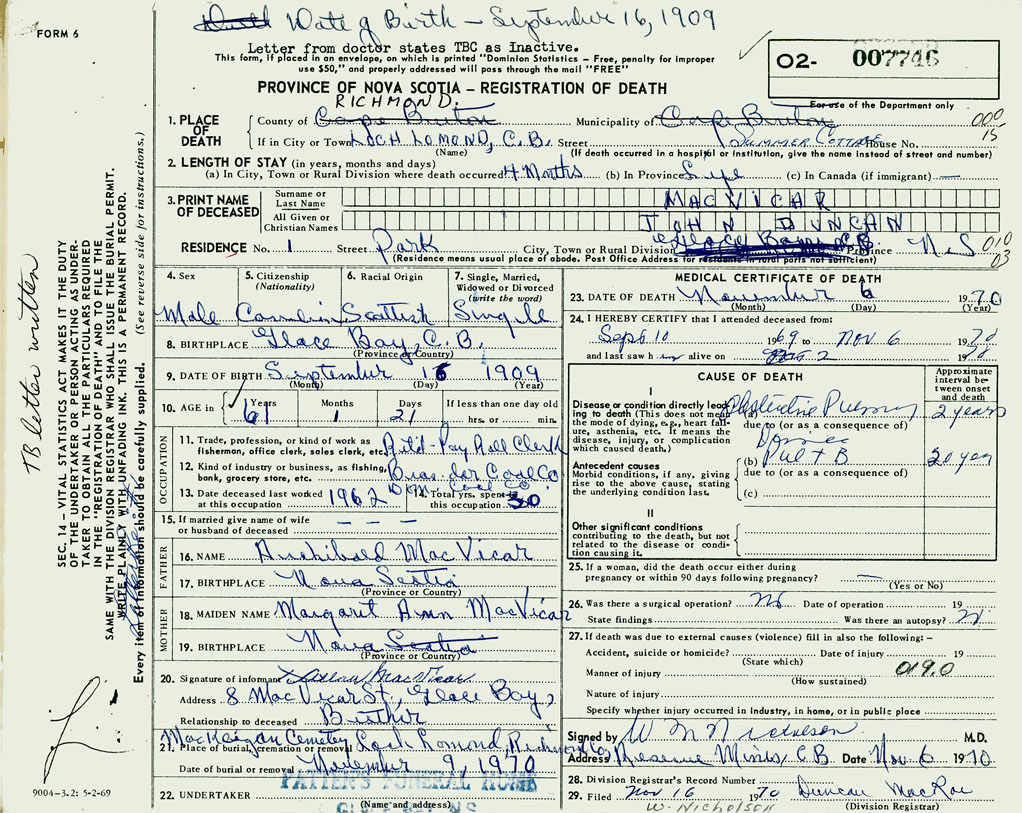 Date of Birth - September 16, 1909
FORM 6
Letter from doctor states TBC as Inactive.
This form, if placed in an envelope, on which is printed "Dominion Statistics – Free, penalty for improper
use $50," and properly addressed will pass through the mail "FREE"
O2- 007746
PROVINCE OF NOVA SCOTIA – REGISTRATION OF DEATH
For use of the Department only
RICHMOND.
1. PLACE OF DEATH
County of Cape Breton Municipality of Cape Breton 000
If in City or Town LOCH LOMOND, C.B. Street SUMMER COTTAGE House No. 15
(Name) (If death occurred in a hospital or institution, give the name instead of street and number)
2. LENGTH OF STAY (in years, months and days)
(a) In City, Town or Rural Division where death occurred 4 Months (b) In Province Life (c) In Canada (if immigrant) —
3. PRINT NAME OF DECEASED
Surname or Last Name MACVICAR
All Given or Christian Names JOHN DUNCAN
RESIDENCE No. 1 Street Park City, Town or Rural Division Glace Bay C.B. Province N.S 010
03
(Residence means usual place of abode. Post Office Address for residents in rural parts not sufficient)
4. Sex
5. Citizenship (Nationality)
6. Racial Origin
7. Single, Married, Widowed or Divorced (write the word)
Male Canadian Scottish Single
8. BIRTHPLACE Glace Bay, C.B.
(Province or Country)
9. DATE OF BIRTH September 16 1909
(Month) (Day) (Year)
10. AGE in Years Months Days If less than one day old
61 1 21 hrs. or min.
OCCUPATION
11. Trade, profession, or kind of work as fisherman, office clerk, sales clerk, etc. Ret'd-Pay Roll Clerk
12. Kind of industry or business, as fishing, bank, grocery store, etc. Coal Co
13. Date deceased last worked at this occupation 1962
14. Total yrs. spent in this occupation 30
15. If married give name of wife or husband of deceased — — —
FATHER
16. NAME Archibald MacVicar
17. BIRTHPLACE Nova Scotia
(Province or Country)
MOTHER
18. MAIDEN NAME Margaret Ann MacVicar
19. BIRTHPLACE Nova Scotia
(Province or Country)
20. Signature of informant MacVicar
Address 8 MacVicar St., Glace Bay,
Relationship to deceased Brother
MacKeigan Cemetery
21. Place of burial, cremation or removal Loch Lomond, Richmond Co,
Date of burial or removal November 9, 1970
22. UNDERTAKER
PATTEN'S FUNERAL HOME
(Name and address)
9004-3.2: 5-2-69
MEDICAL CERTIFICATE OF DEATH
23. DATE OF DEATH November 6 1970
(Month) (Day) (Year)
24. I HEREBY CERTIFY that I attended deceased from:
Sept 10 1969 to Nov 6 1970
and last saw him alive on 2 1970
CAUSE OF DEATH
Approximate interval between onset and death
I
Disease or condition directly leading to death (This does not mean the mode of dying, e.g., heart failure, asthenia, etc. It means the disease, injury, or complication which caused death.)
(a) Obstructive Pulmonary 2 years
due to (or as a consequence of)
Antecedent causes
Morbid conditions, if any, giving rise to the above cause, stating the underlying condition last.
(b) Pul T B 20 year
due to (or as a consequence of)
(c)
II
Other significant conditions contributing to the death, but not related to the disease or condition causing it.
25. If a woman, did the death occur either during pregnancy or within 90 days following pregnancy? —
(Yes or No)
26. Was there a surgical operation? No Date of operation 19
State findings Was there an autopsy?
27. If death was due to external causes (violence) fill in also the following: –
Accident, suicide or homicide? Date of injury 19
(State which)
Manner of injury 019.0
(How sustained)
Nature of injury
Specify whether injury occurred in industry, in home, or in public place
Signed by W M Nicholson M.D.
Address Reserve Mines, C.B Date Nov. 6 1970
28. Division Registrar's Record Number
29. Filed Nov 16 1970 Duncan MacRae
(Division Registrar)
W. Nicholson
SEC. 14 – VITAL STATISTICS ACT MAKES IT THE DUTY
OF THE UNDERTAKER OR PERSON ACTING AS UNDERTAKER TO OBTAIN ALL THE PARTICULARS REQUIRED
IN THE "REGISTRATION OF DEATH" AND TO FILE THE
SAME WITH THE DIVISION REGISTRAR WHO SHALL ISSUE THE BURIAL PERMIT.
WRITE PLAINLY WITH UNFADING INK. THIS IS A PERMANENT RECORD.
Every item of information should be carefully supplied. (See reverse side for instructions.)
TB letter written